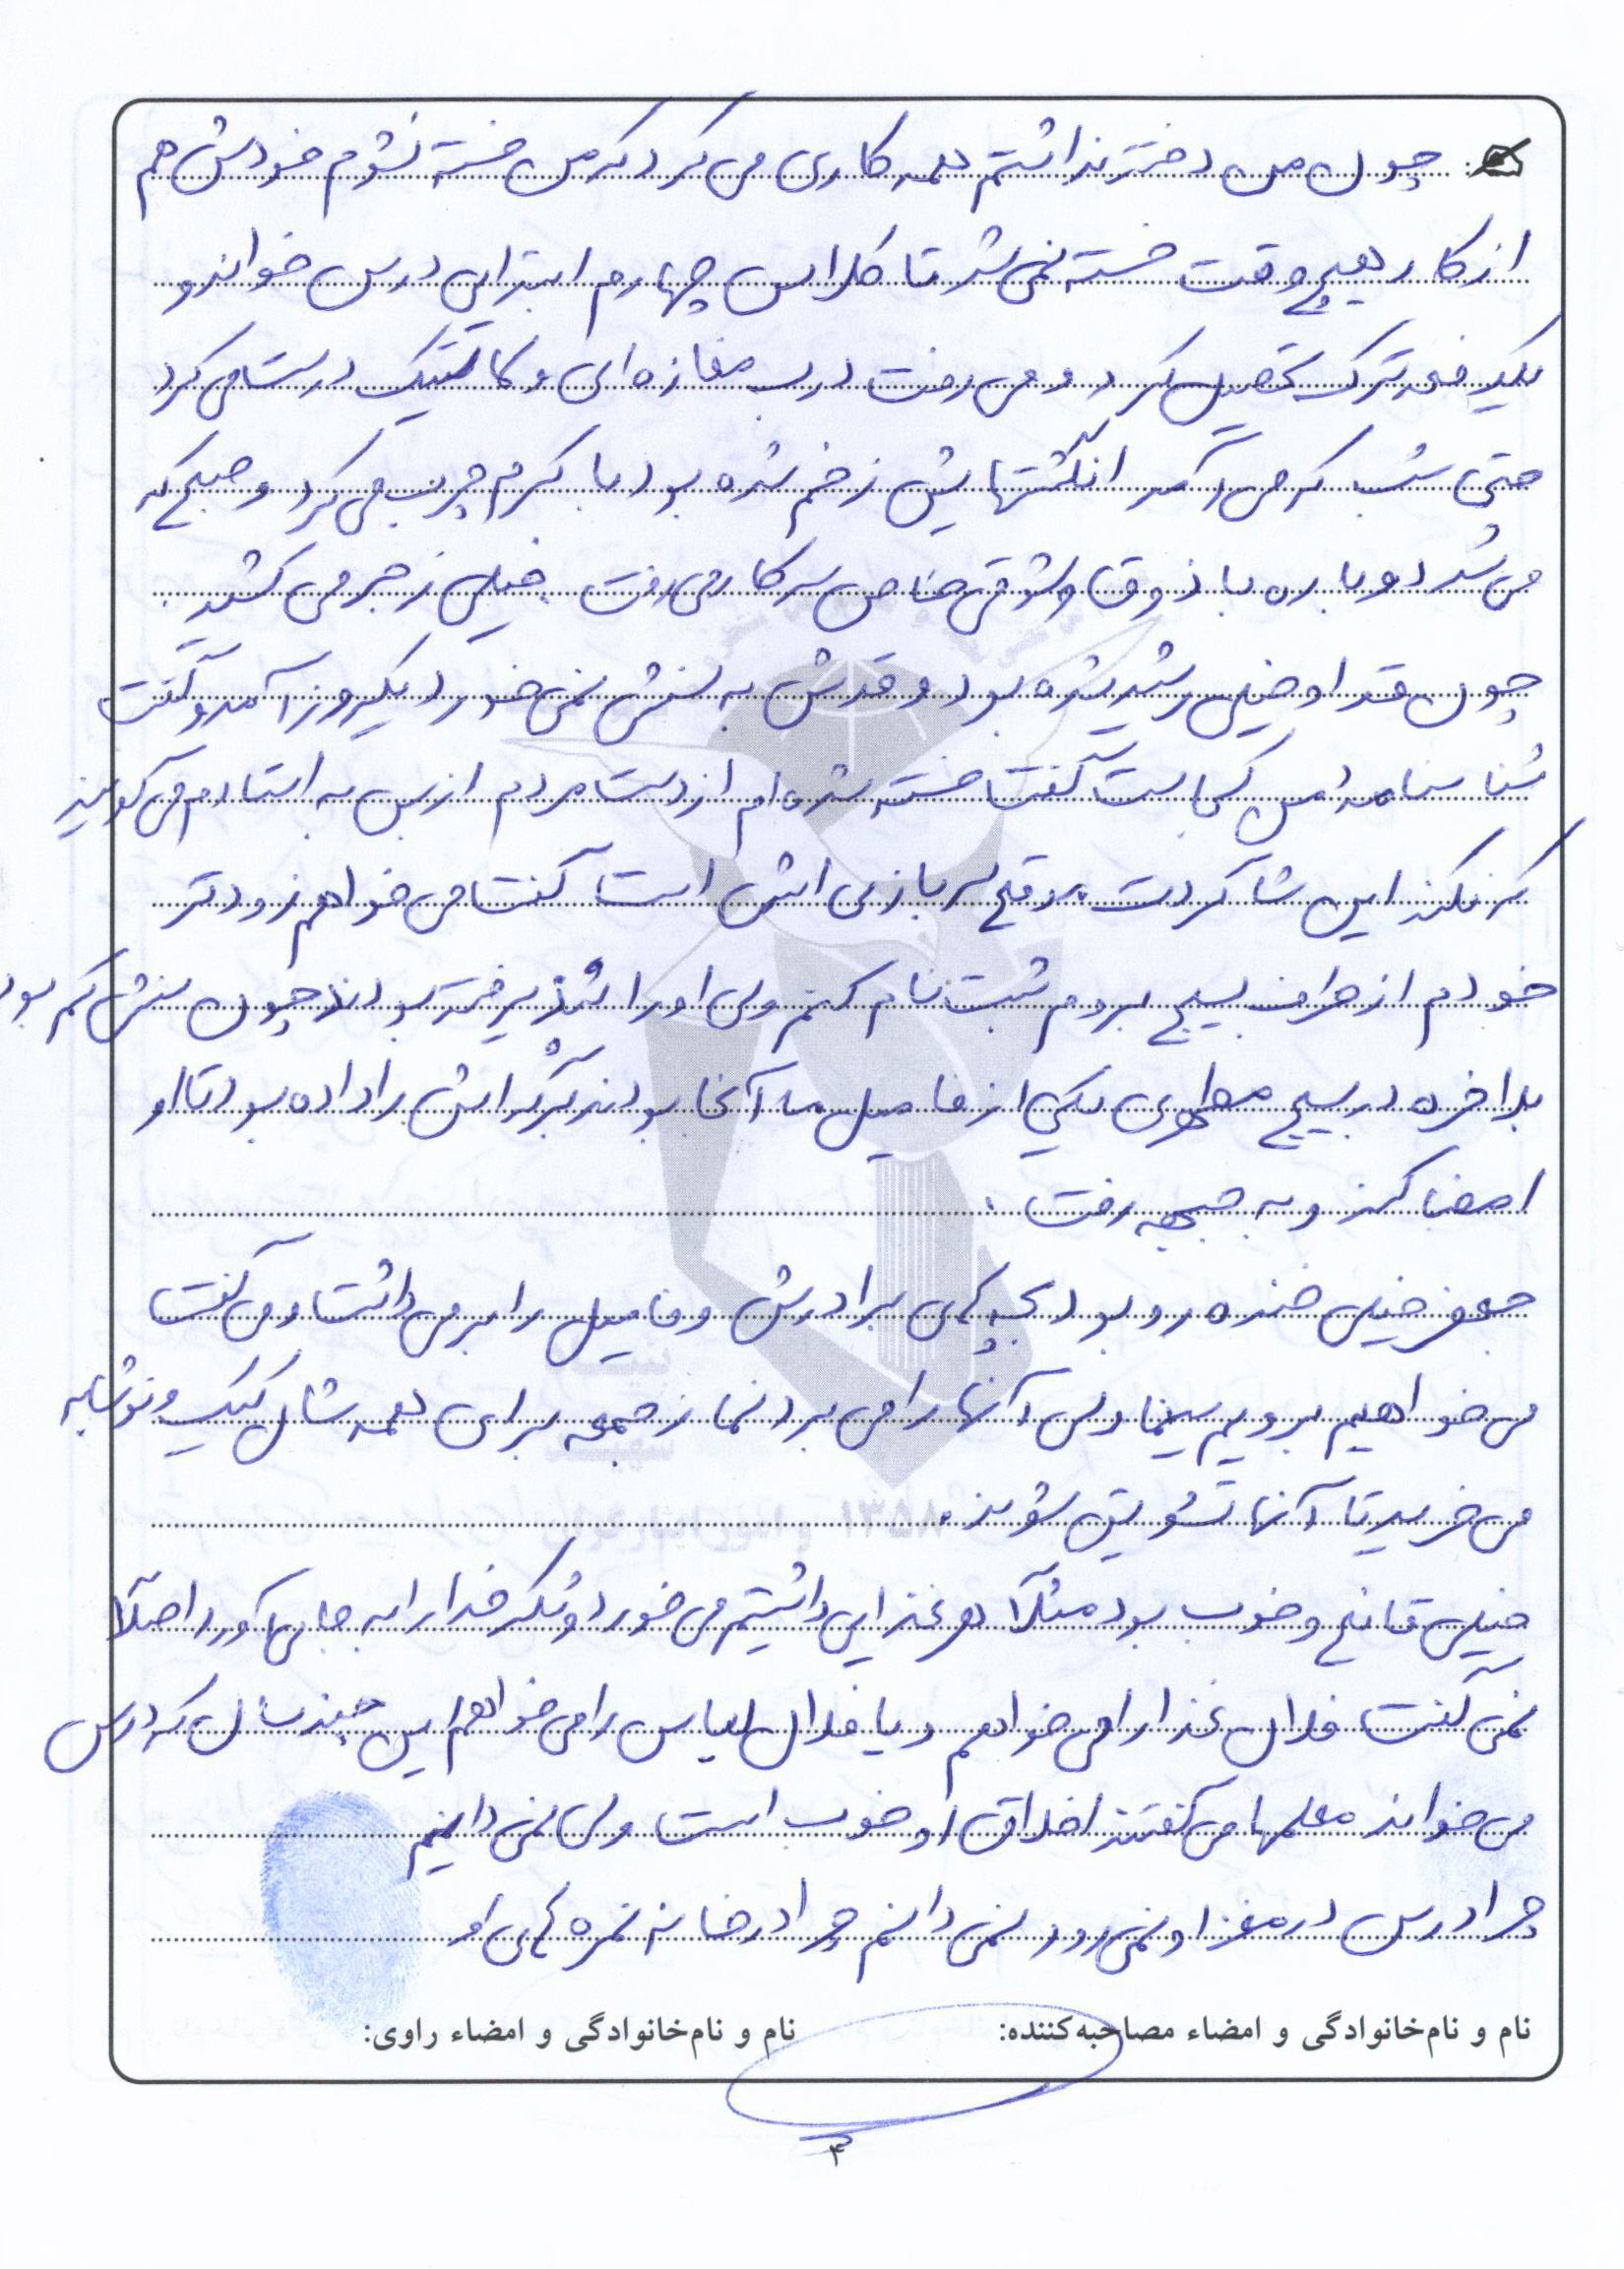 چون من دختر نداشتم همه کاری می کرد که من خسته نشوم خودش هم
از کار هیچ وقت خسته نمی شد تا کلاس چهارم ابتدایی درس خواند و
یکدفعه ترک تحصیل کرد و می رفت درب مغازه ای و کاتبیک درست می کرد
حتی شب که می آمد انگشتهایش زخم شده بود با کرم چرب می کرد و صبح که
می شد دوباره با ذوق و شوقی خاص سر کار می رفت . خیلی زجر می کشید .
چون قد او خیلی رشید شده بود و قدش به سنش نمی خورد یکروز آمد و گفت
شناسنامه اش کجاست گفت خسته شده ام از دست مردم از بس به استادم می گویند
که نکند این شاگردت موقع سربازی اش است گفت می خواهم زودتر
خودم از طرف بسیج بروم ثبت نام کنم ولی او را نپذیرفته بودند چون سنش کم بود
بلاخره در بسیج مطهری یکی از فامیل ما آنجا بودند برگه اش را داده بود تا او
امضا کند و به جبهه رفت .
جعفر خیلی خنده رو بود بچه های برادرش و فامیل را بر می داشت و می گفت
می خواهیم برویم سینما ولی آنها را می برد نماز جمعه برای همه شان کیک و نوشابه
می خرید تا آنها تشویق شوند .
خیلی قانع و خوب بود مثلاً هر غذایی داشتیم می خورد و شکر خدا را به جا می آورد اصلاً
نمی گفت فلان غذا را می خواهم و یا فلان لباس را می خواهم این چند سال که درس
می خواند معلمها می گفتند اخلاق او خوب است ولی نمی دانیم
چرا درس در مغز او نمی رود نمی دانم چرا در خانه نمره های او
نام و نام خانوادگی و امضاء مصاحبه کننده:
نام و نام خانوادگی و امضاء راوی:
۴